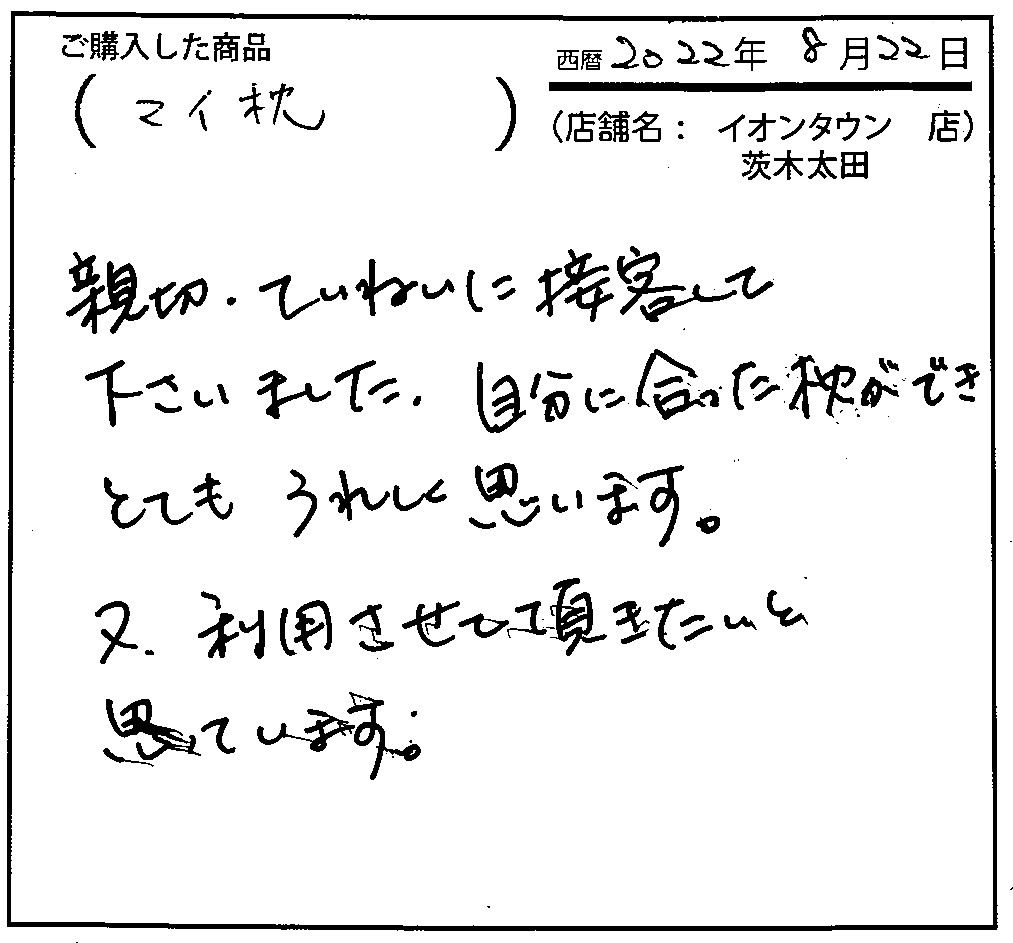 ご購入した商品
(マイ枕)
西暦2022年 8月22日
(店舗名: イオンタウン 店)
茨木太田
親切.ていねいに接客して
下さいました. 自分に合った枕ができ
とても うれしく思います。
又. 利用させて頂きたいと
思っています。